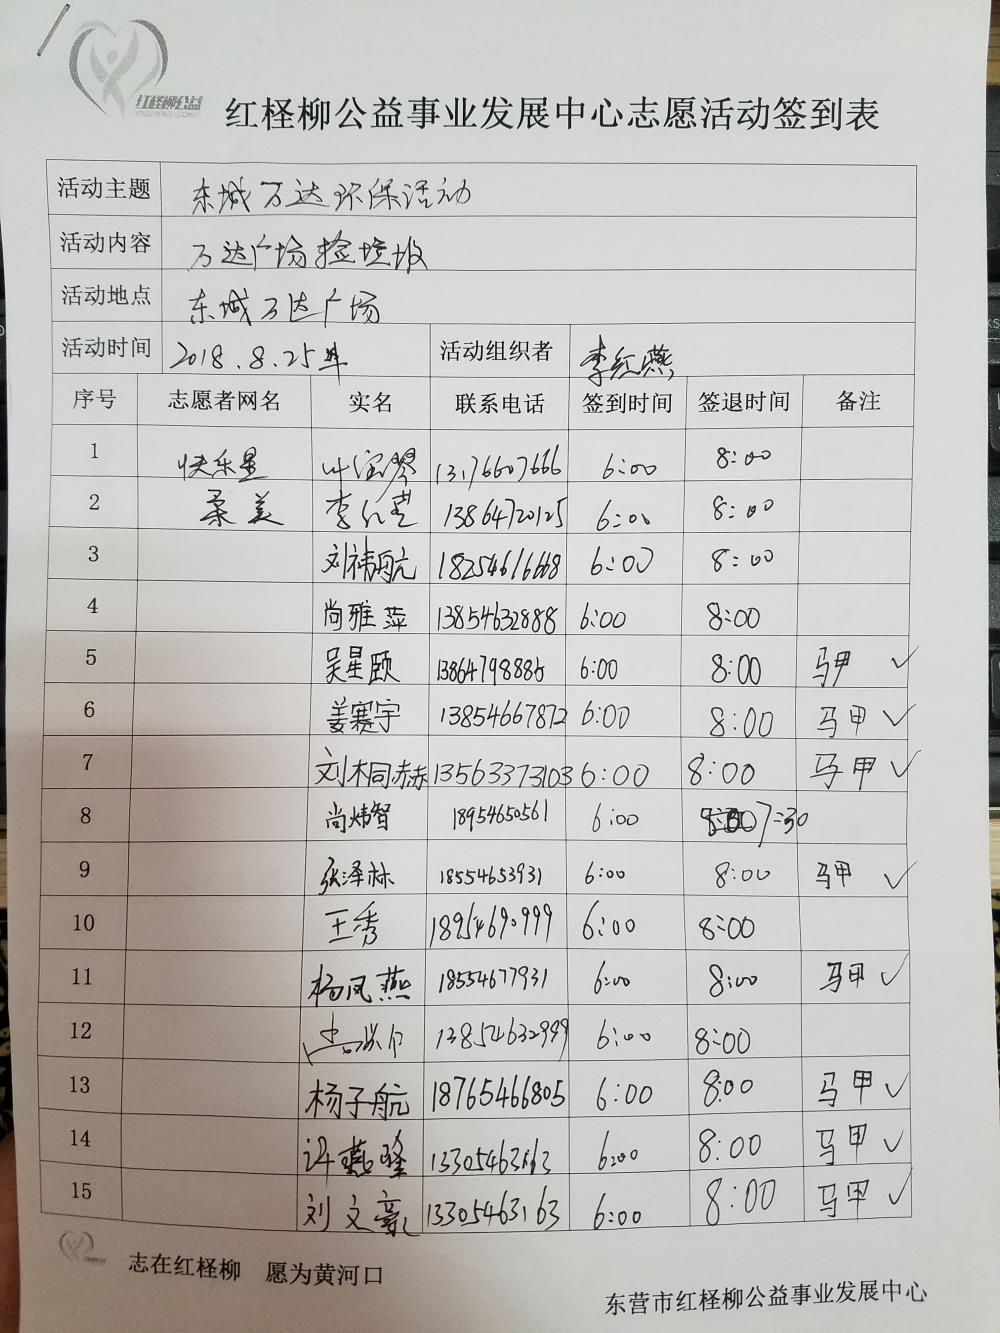 红柽柳公益
红柽柳公益事业发展中心志愿活动签到表
活动主题 东城万达环保活动
活动内容 万达广场捡垃圾
活动地点 东城万达广场
活动时间 2018.8.25 活动组织者 李红燕
序号 志愿者网名 实名 联系电话 签到时间 签退时间 备注
1 快乐星 叶宝琴 13176607666 6:00 8:00
2 柔美 李红 13864720125 6:00 8:00
3 刘祎航 18254616668 6:00 8:00
4 尚雅萍 13854632888 6:00 8:00
5 吴星颐 13864798885 6:00 8:00 马甲 ✓
6 姜赛宇 13854667872 6:00 8:00 马甲 ✓
7 刘桐赫 13563373103 6:00 8:00 马甲 ✓
8 尚炜智 18954650561 6:00 7:30
9 张泽林 18554653931 6:00 8:00 马甲 ✓
10 王秀 18954690999 6:00 8:00
11 杨凤燕 18554677931 6:00 8:00 马甲 ✓
12 13854632999 6:00 8:00
13 杨子航 18765466805 6:00 8:00 马甲 ✓
14 许燕隆 13305463163 6:00 8:00 马甲 ✓
15 刘文豪 13305463163 6:00 8:00 马甲 ✓
志在红柽柳 愿为黄河口
东营市红柽柳公益事业发展中心